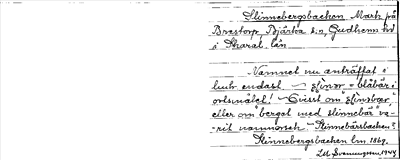 Slinnebergsbacken. Mark på
Brestorp, Bjärka s:n, Gudhems hd
i Skarab. län
Namnet nu anträffat i
lmk endast. — slinor = blåbär i
ortsmålet! Ovisst om "slinsbär",
eller om "berget med slinnebär" va-
rit namnorsak. Slinnebärsbacken?
Slinnebergsbacken lm. 1869.
Svenungsson, 1944